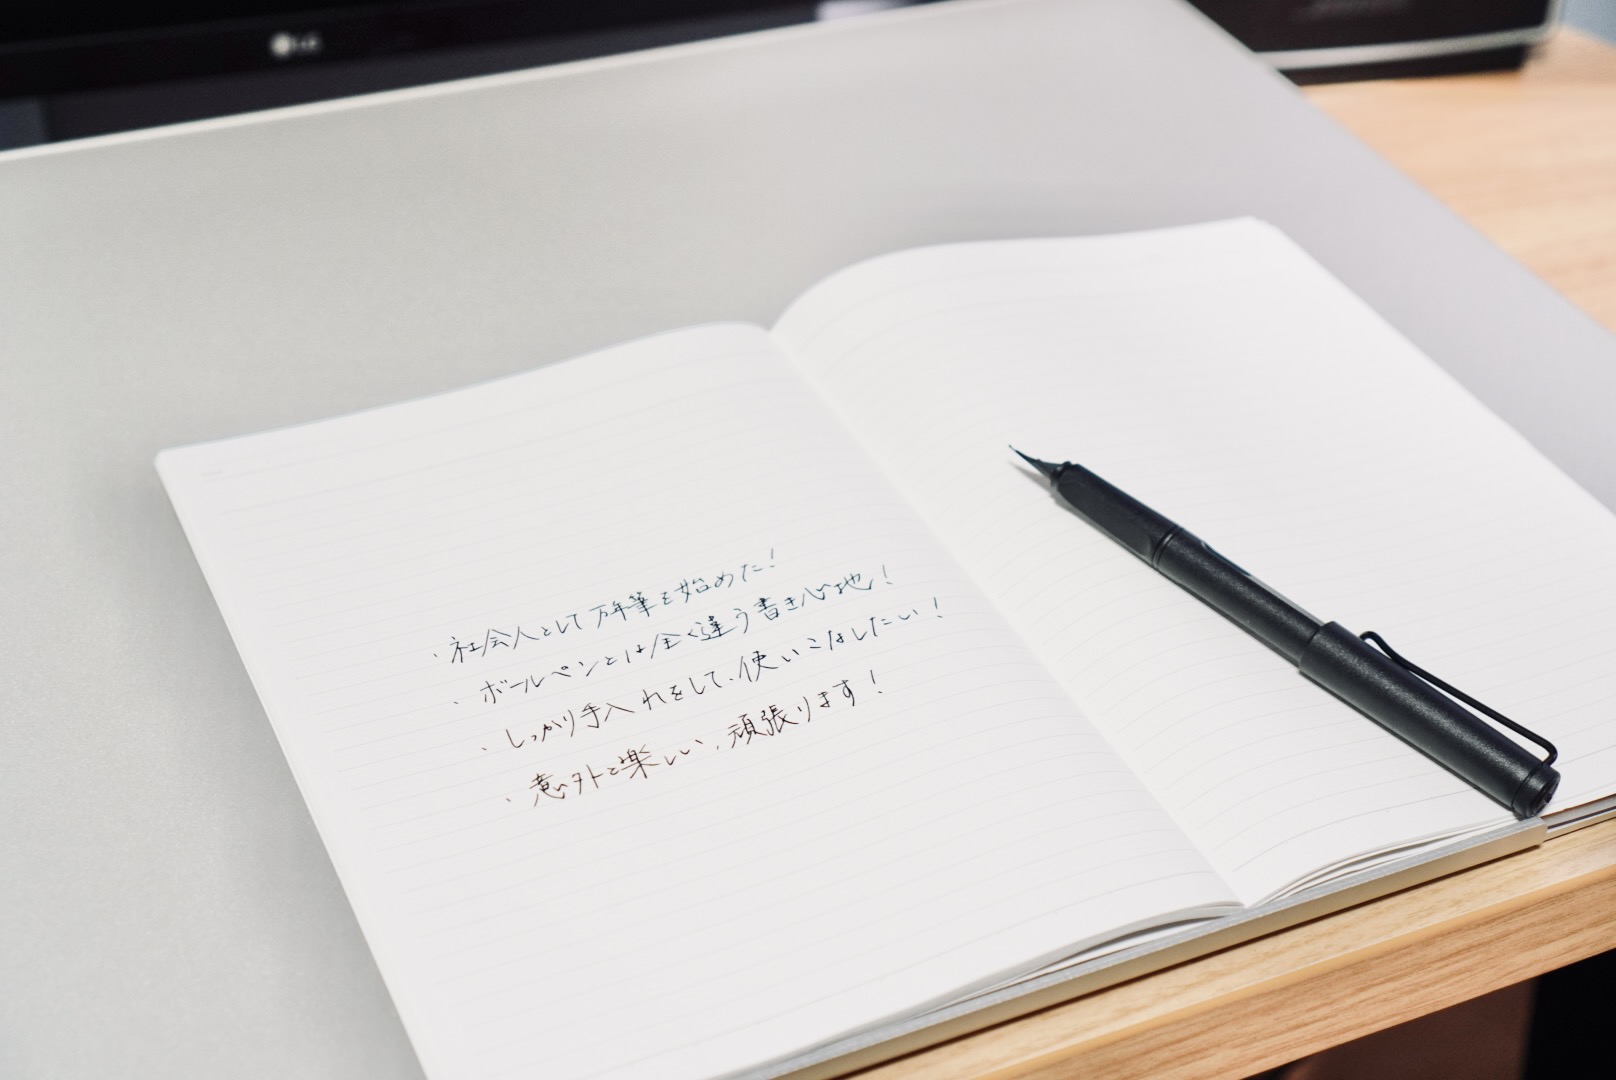 LG
・社会人として万年筆を始めた！
・ボールペンとは全く違う書き心地！
・しっかり手入れをして、使いこなしたい！
・意外と楽しい、頑張ります！